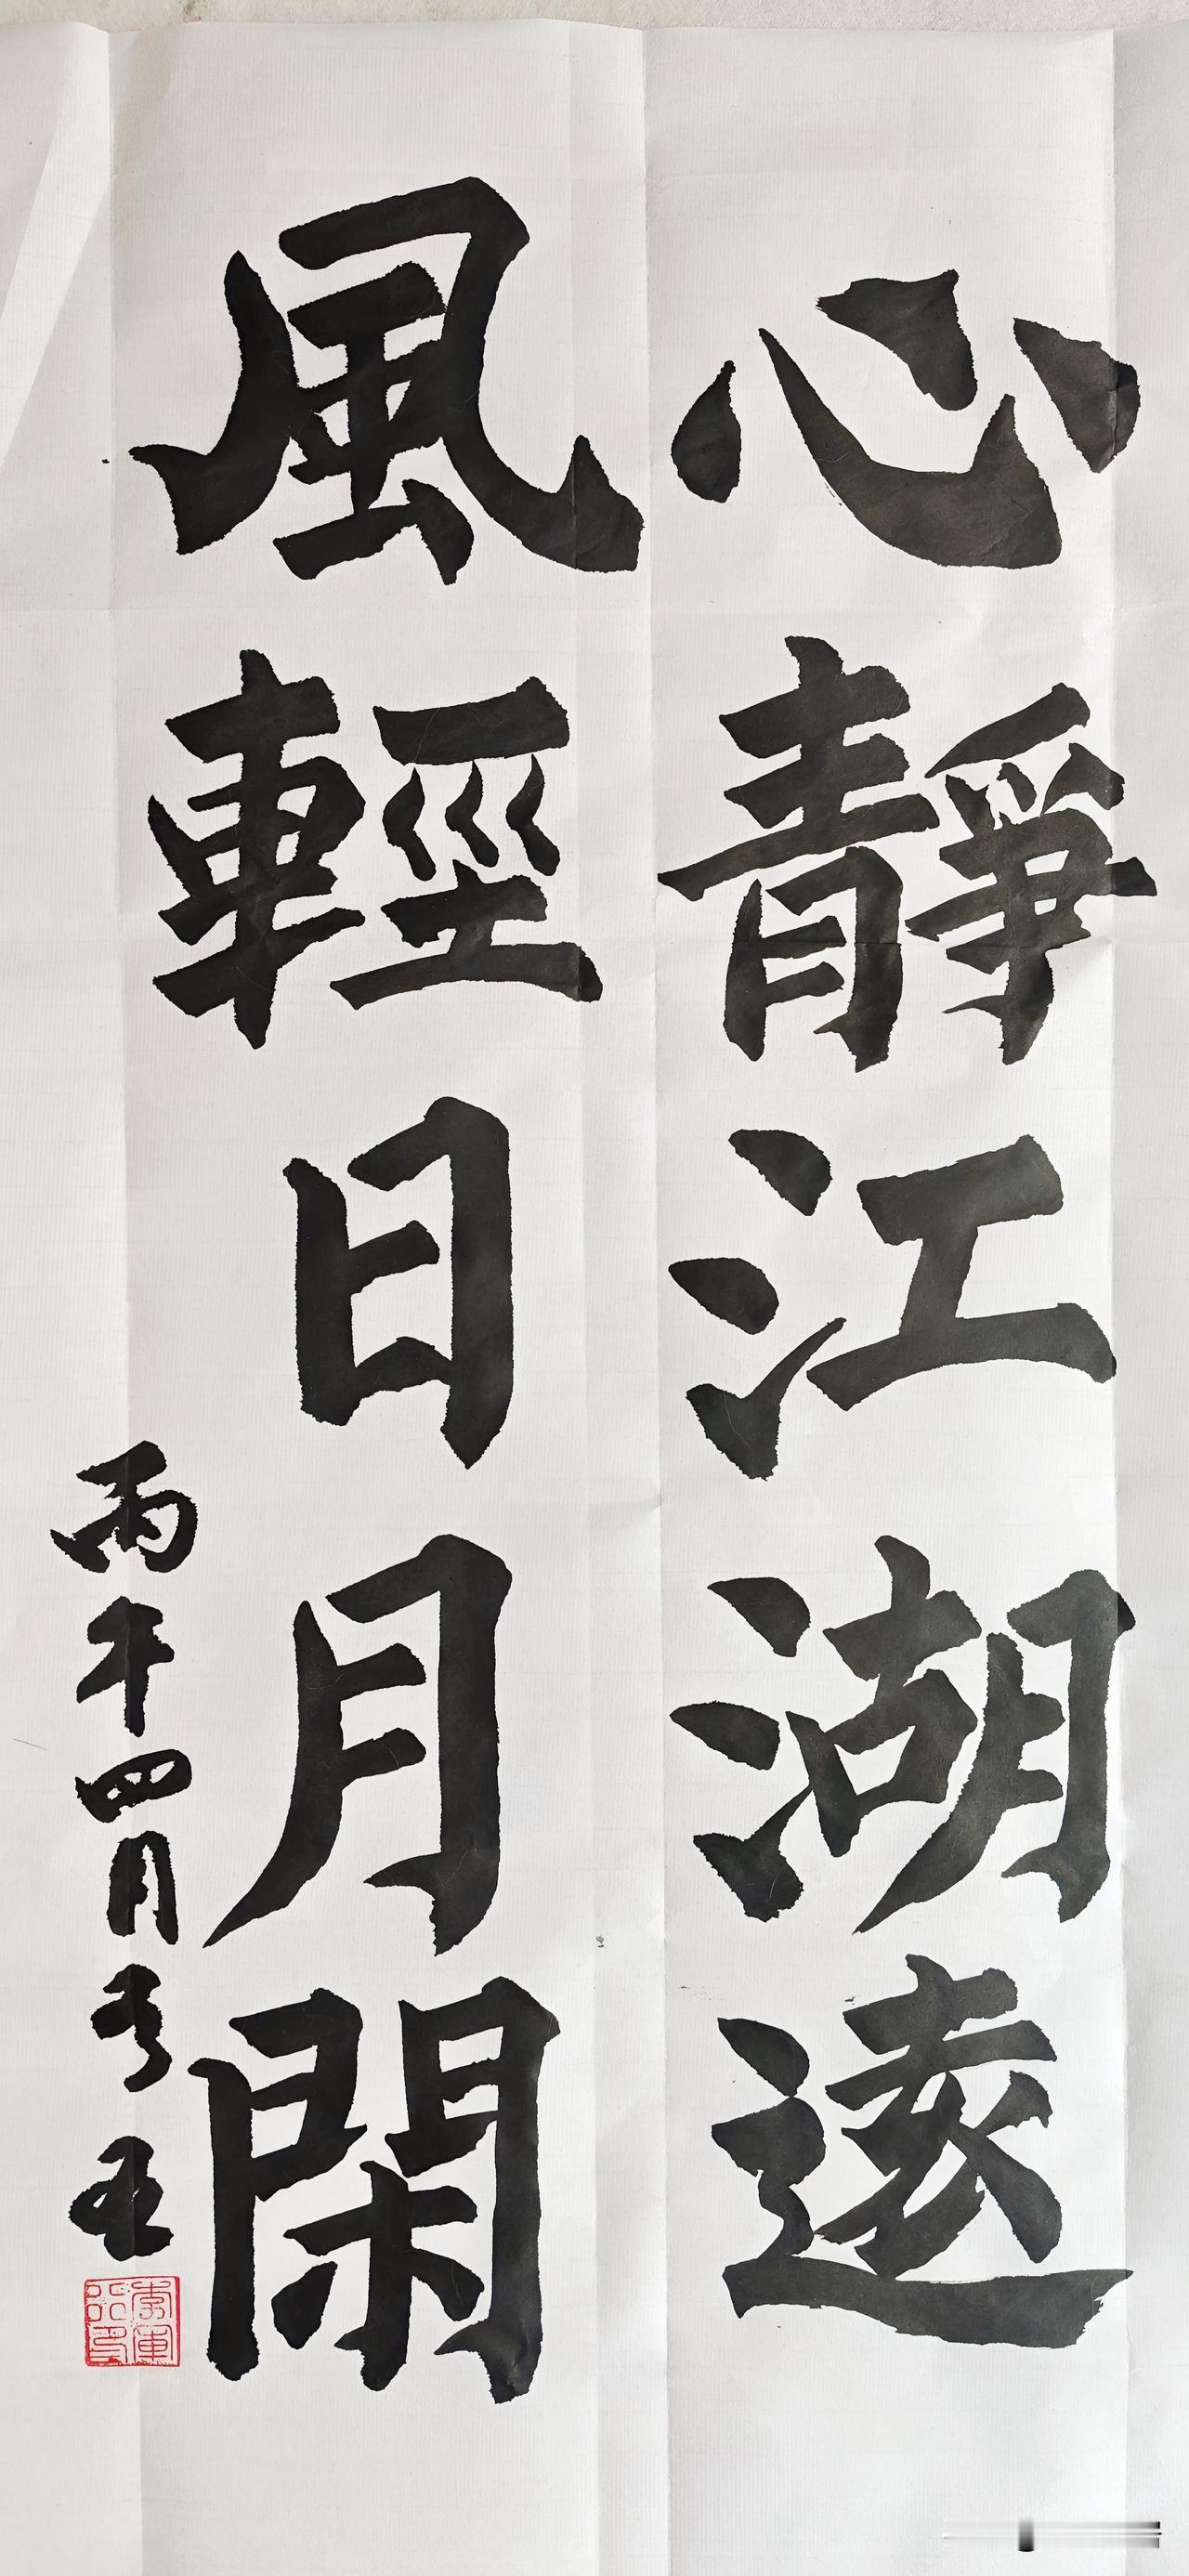 心靜江湖遠
風輕日月閑
丙午四月